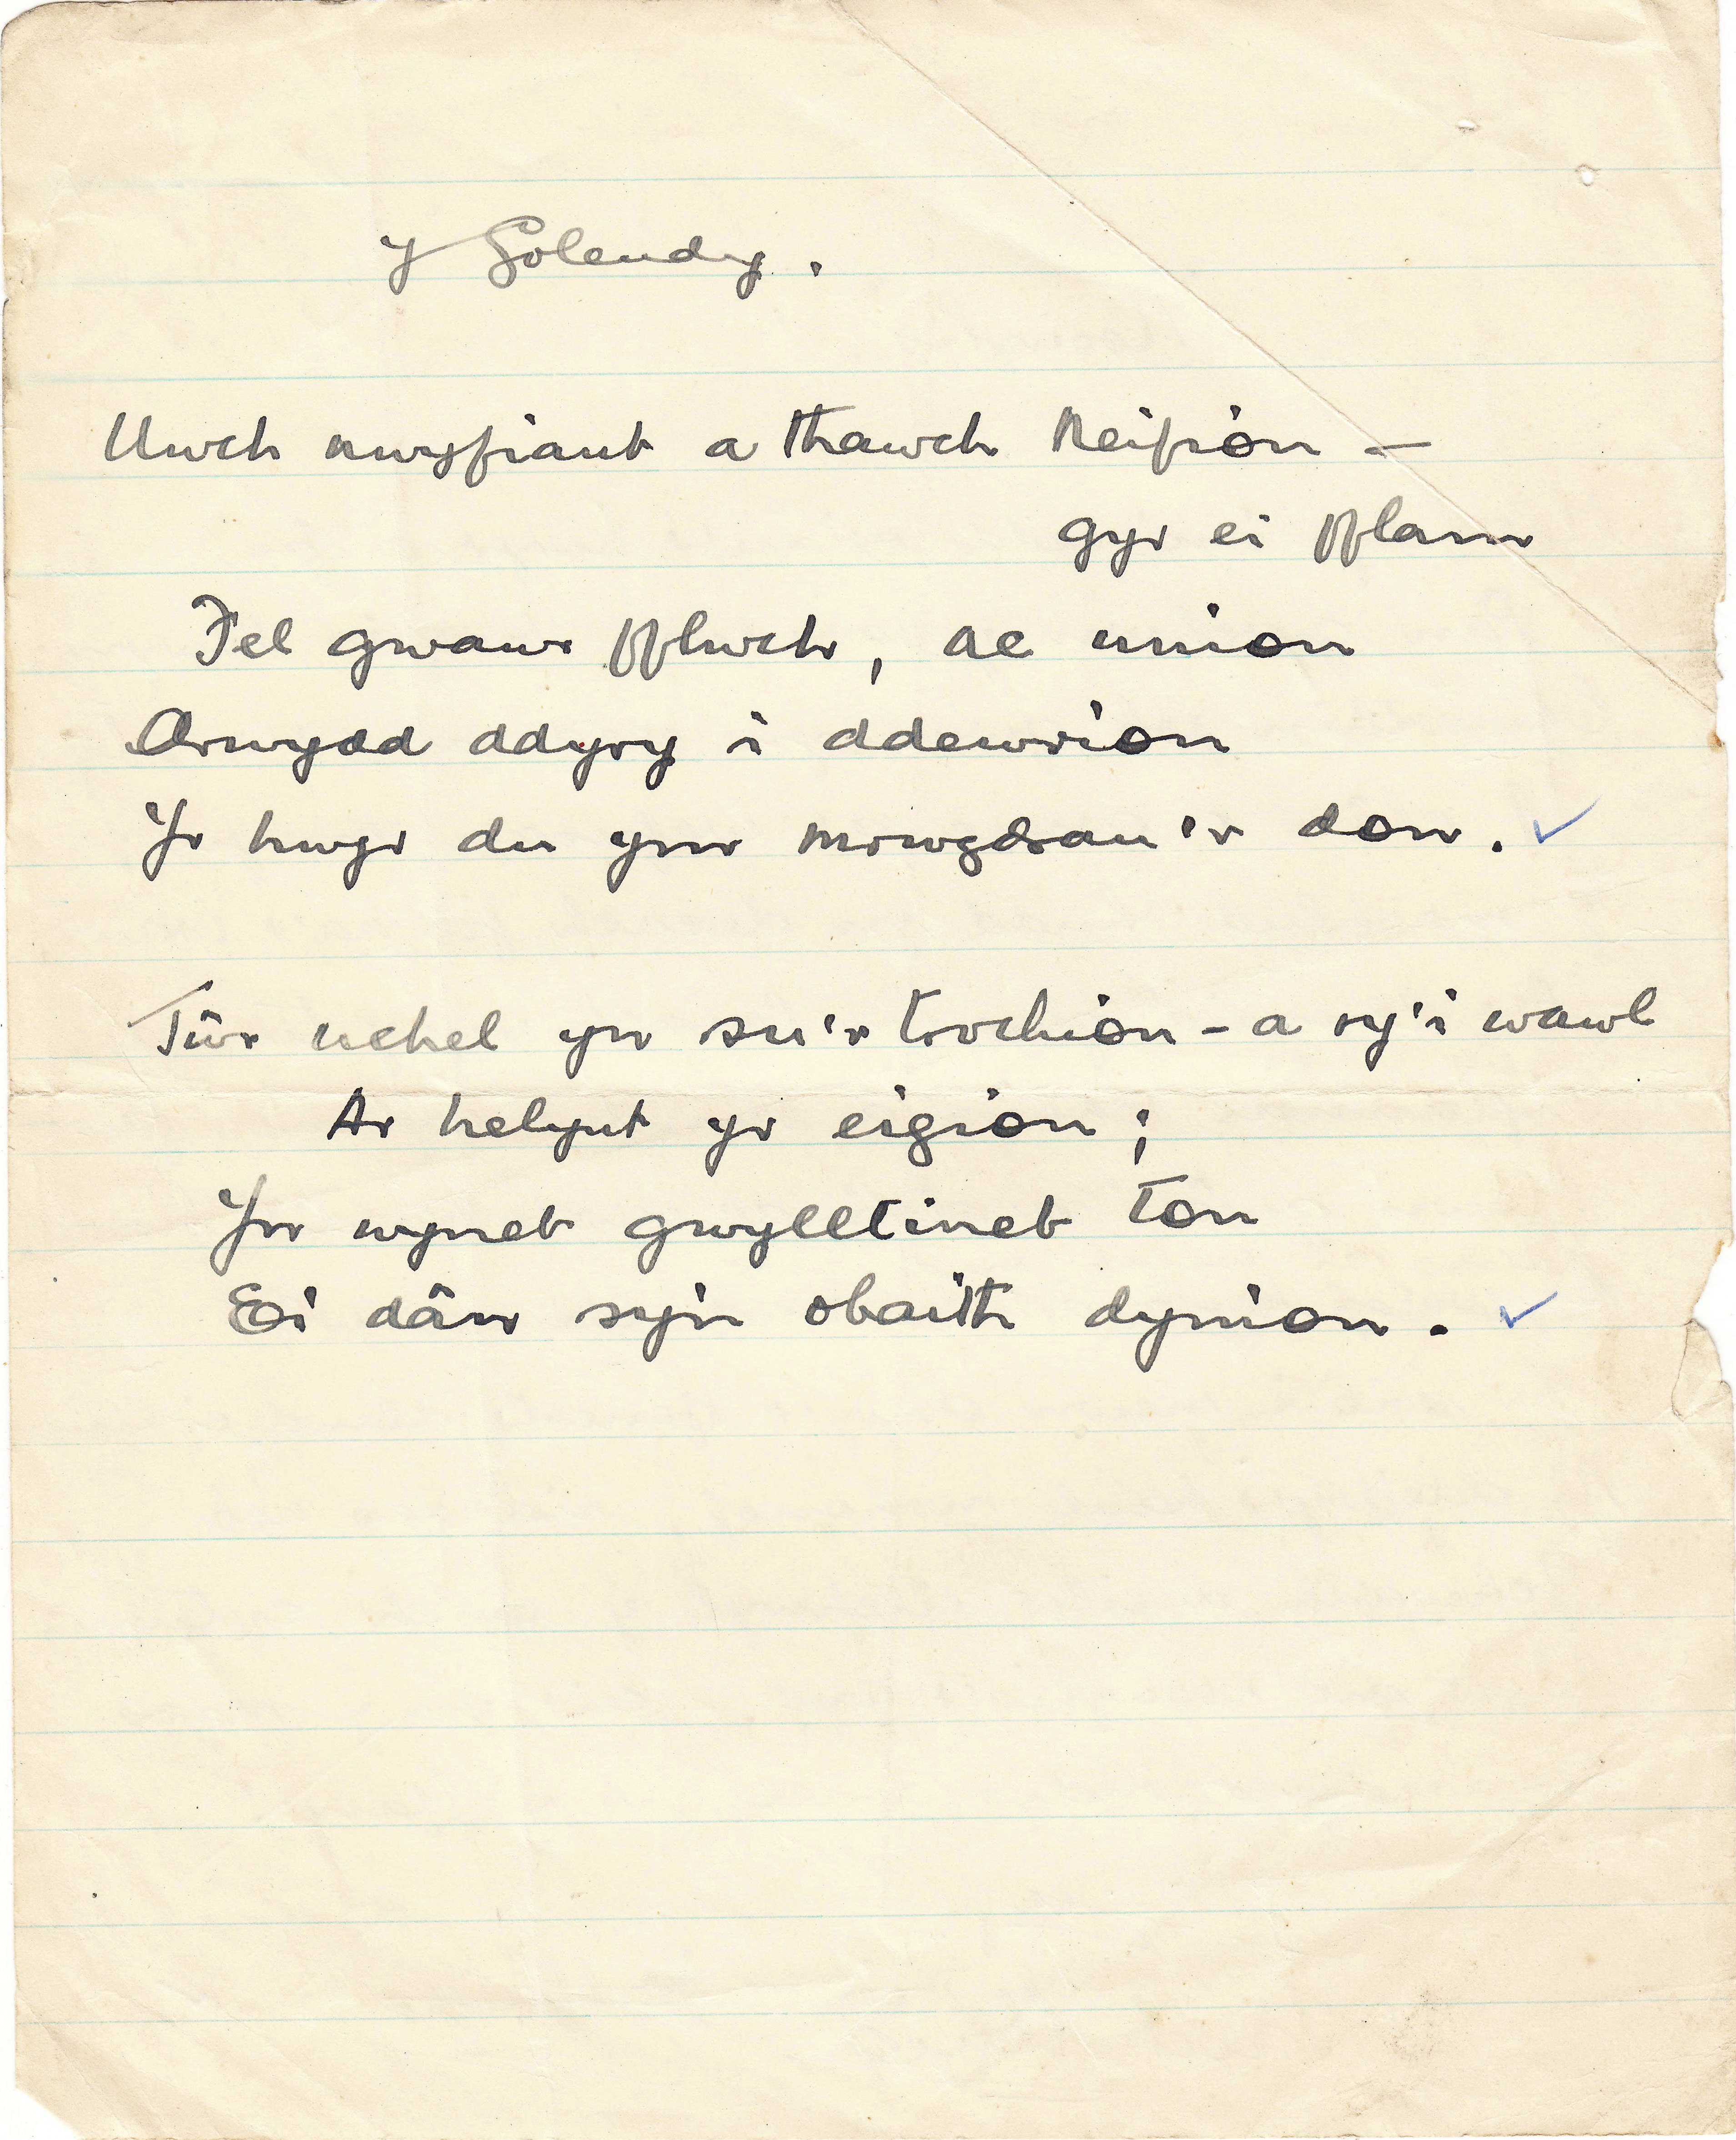 Y Goleudy.
Uwch nwyfiant a thawch Neifion —
gyr ei fflam
Fel gwawr fflwch, ac union
Arwydd ddyry i ddewrion
Yr hwyr du ym mrwydrau'r don.
Tŵr uchel yn su'r trochion - a sy'i wawl
Ar helynt yr eigion;
Yn wyneb gwylltineb ton
Ei dân sy'n obaith dynion.